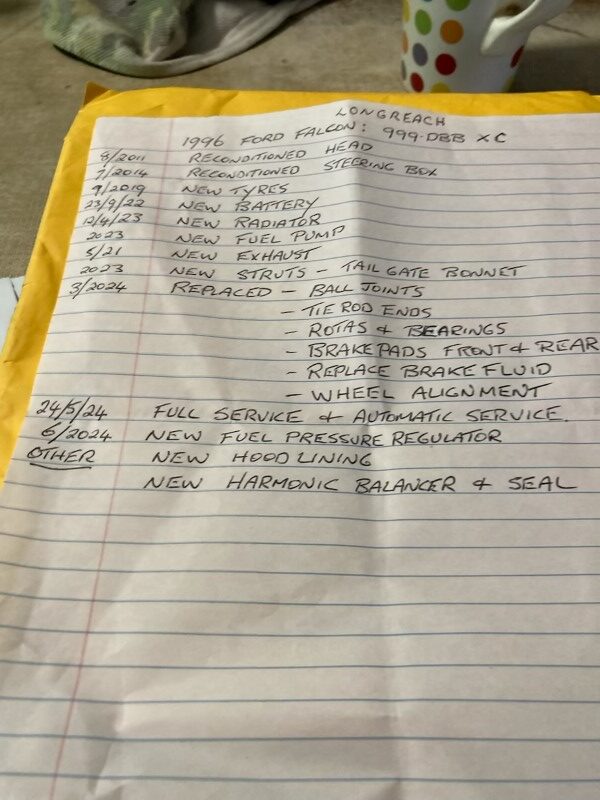 LONGREACH
1996 FORD FALCON: 999·DBB XC
8/2011 RECONDITIONED HEAD
7/2014 RECONDITIONED STEERING BOX
9/2019 NEW TYRES
23/9/22 NEW BATTERY
12/4/23 NEW RADIATOR
2023 NEW FUEL PUMP
5/21 NEW EXHAUST
2023 NEW STRUTS - TAIL GATE BONNET
3/2024 REPLACED - BALL JOINTS
- TIE ROD ENDS
- ROTAS & BEARINGS
- BRAKE PADS FRONT & REAR
- REPLACE BRAKE FLUID
- WHEEL ALIGNMENT
24/5/24 FULL SERVICE & AUTOMATIC SERVICE.
6/2024 NEW FUEL PRESSURE REGULATOR
OTHER NEW HOOD LINING
NEW HARMONIC BALANCER & SEAL